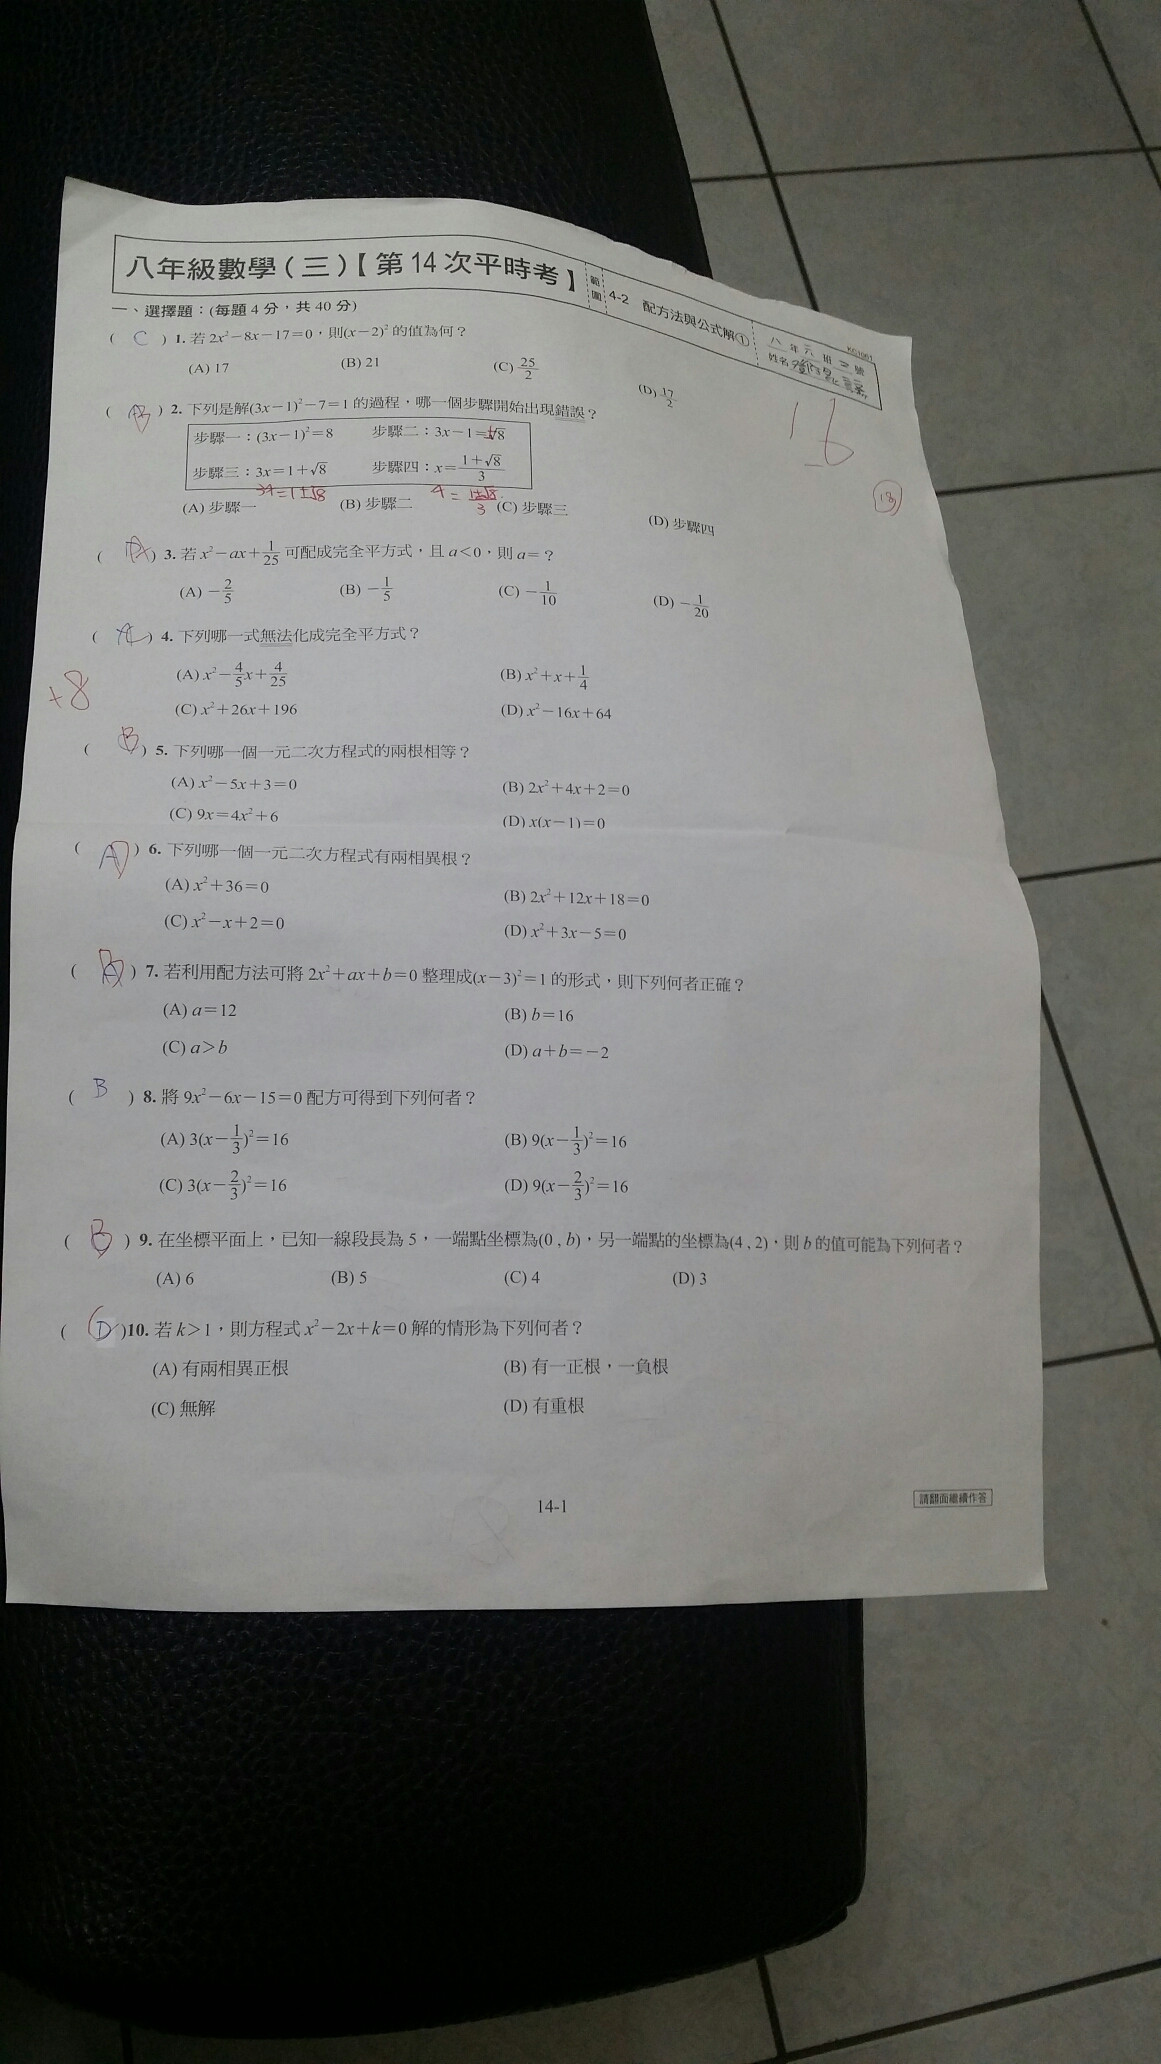 八年級數學(三)【第14次平時考】 範圍 4-2 配方法與公式解①
八年六班 號
姓名
一、選擇題：(每題4分，共40分)
( C ) 1. 若 2x²−8x−17=0，則(x−2)² 的值為何？
(A) 17 (B) 21 (C) 25/2 (D) 17/2
16
( B ) 2. 下列是解(3x−1)²−7=1 的過程，哪一個步驟開始出現錯誤？
步驟一：(3x−1)²=8 步驟二：3x−1=±√8
步驟三：3x=1+√8 步驟四：x=(1+√8)/3
3x=1±√8 x=(1±√8)/3
(A) 步驟一 (B) 步驟二 (C) 步驟三 (D) 步驟四
( A ) 3. 若 x²−ax+1/25 可配成完全平方式，且 a<0，則 a=？
(A) −2/5 (B) −1/5 (C) −1/10 (D) −1/20
( ) 4. 下列哪一式無法化成完全平方式？
(A) x²−4/5x+4/25 (B) x²+x+1/4
+8
(C) x²+26x+196 (D) x²−16x+64
( B ) 5. 下列哪一個一元二次方程式的兩根相等？
(A) x²−5x+3=0 (B) 2x²+4x+2=0
(C) 9x=4x²+6 (D) x(x−1)=0
( A ) 6. 下列哪一個一元二次方程式有兩相異根？
(A) x²+36=0 (B) 2x²+12x+18=0
(C) x²−x+2=0 (D) x²+3x−5=0
( ) 7. 若利用配方法可將 2x²+ax+b=0 整理成(x−3)²=1 的形式，則下列何者正確？
(A) a=12 (B) b=16
(C) a>b (D) a+b=−2
( B ) 8. 將 9x²−6x−15=0 配方可得到下列何者？
(A) 3(x−1/3)²=16 (B) 9(x−1/3)²=16
(C) 3(x−2/3)²=16 (D) 9(x−2/3)²=16
( B ) 9. 在坐標平面上，已知一線段長為 5，一端點坐標為(0 , b)，另一端點的坐標為(4 , 2)，則 b 的值可能為下列何者？
(A) 6 (B) 5 (C) 4 (D) 3
( D )10. 若 k>1，則方程式 x²−2x+k=0 解的情形為下列何者？
(A) 有兩相異正根 (B) 有一正根，一負根
(C) 無解 (D) 有重根
14-1
請翻面繼續作答